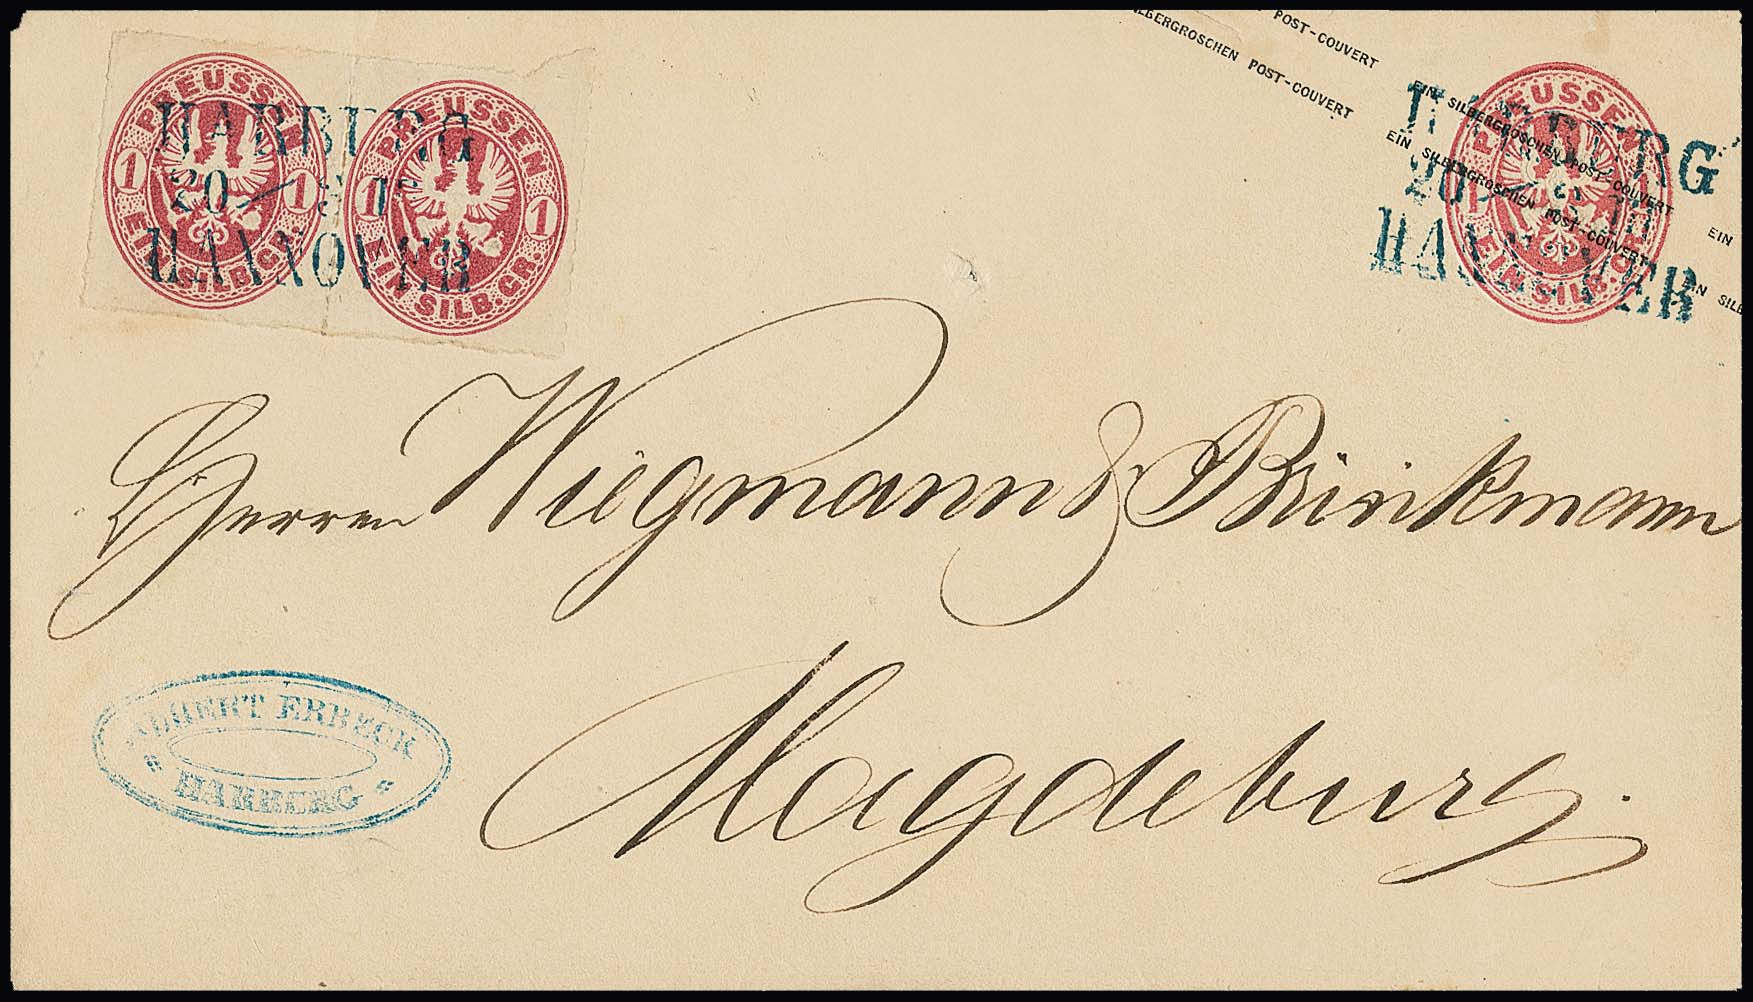 PREUSSEN
1 1
EIN SILB.GR.
PREUSSEN
1 1
EIN SILB.GR.
HARBURG
20
HANNOVER
SILBERGROSCHEN POST-COUVERT
POST-COUVERT
EIN SILBERGROSCHEN POST-COUVERT EIN
EIN SILBERGROSCHEN POST-COUVERT EIN SILB
PREUSSEN
1
EIN SILB.GR.
HARBURG
20
HANNOVER
Herren Wiegmann & Brinkmann
Magdeburg.
ALBERT ERBECK
HARBURG